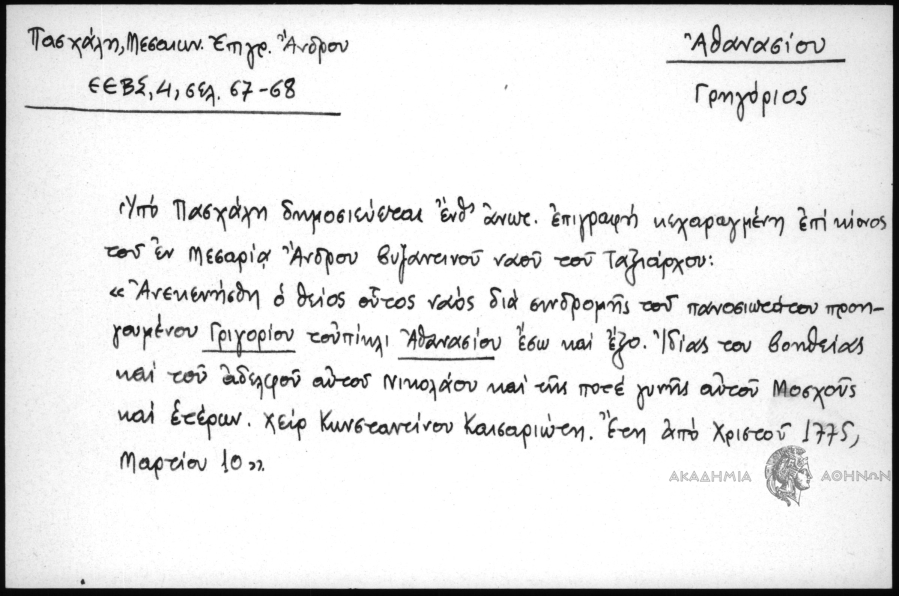 Πασχάλη, Μεσαιων. Ἐπιγρ. Ἄνδρου
ΕΕΒΣ, 4, σελ. 67-68
Ἀθανασίου
Γρηγόριος
Ὑπό Πασχάλη δημοσιεύεται ἔνθ' ἀνωτ. ἐπιγραφή κεχαραγμένη ἐπί κίονος
τοῦ ἐν Μεσαρίᾳ Ἄνδρου βυζαντινοῦ ναοῦ τοῦ Ταξιάρχου:
«Ἀνεκενήσθη ὁ θεῖος οὗτος ναός διά συνδρομῆς τοῦ πανοσιωτάτου προη-
γουμένου Γριγορίου τοὐπίκλι Ἀθανασίου ἔσω καί ἔξο. Ἰδίας του βοηθείας
καί τοῦ ἀδελφοῦ αὐτοῦ Νικολάου καί τῆς ποτέ γυνῆς αὐτοῦ Μοσχοῦς
καί ἑτέρων. χείρ Κωνσταντίνου Καισαριώτη. Ἔτη ἀπό Χριστοῦ 1775,
Μαρτίου 10».
ΑΚΑΔΗΜΙΑ ΑΘΗΝΩΝ